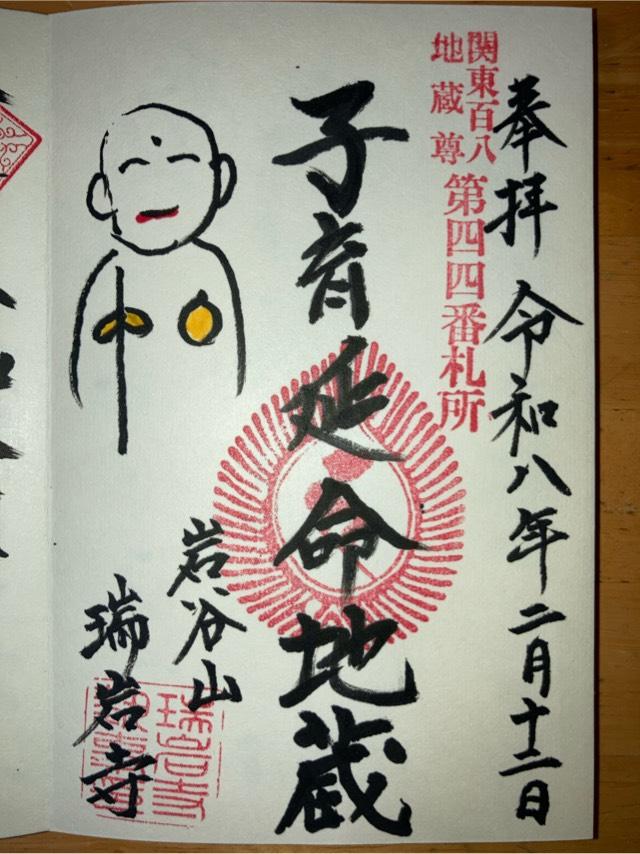 奉拝 令和八年二月十二日
関東百八
地蔵尊
第四四番札所
子育延命地蔵
岩谷山
瑞岩寺